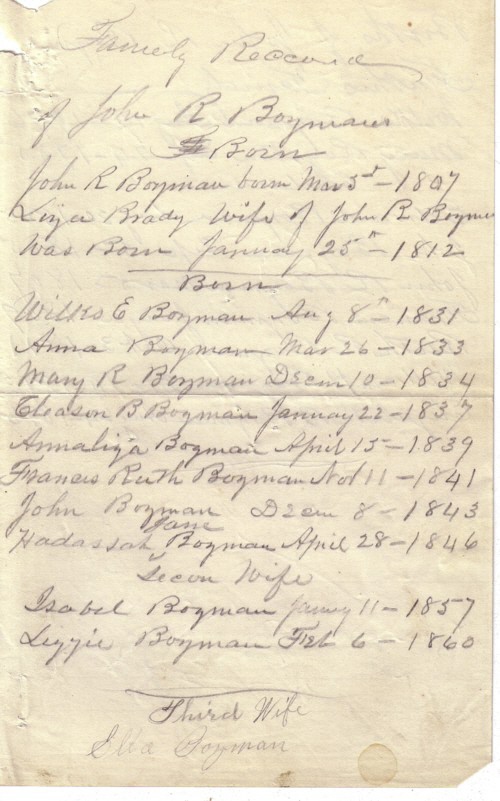 Famely Reccord
of John R Bozman
Born
John R Bozman born Mar 3rd - 1807
Liza Brady Wife of John R Bozman
Was Born January 25th - 1812
Born
Wilks E Bozman Aug 8th - 1831
Anna Bozman Mar 26 - 1833
Mary R Bozman Decm 10 - 1834
Gleason B Bozman January 22 - 1837
Annaliza Bozman April 15 - 1839
Frances Ruth Bozman Nov 11 - 1841
John Bozman Decm 8 - 1843
Hadassah Jane Bozman April 28 - 1846
Secon Wife
Isabel Bozman 11 - 1857
Lizzie Bozman Feb 6 - 1860
Third Wife
Bozman